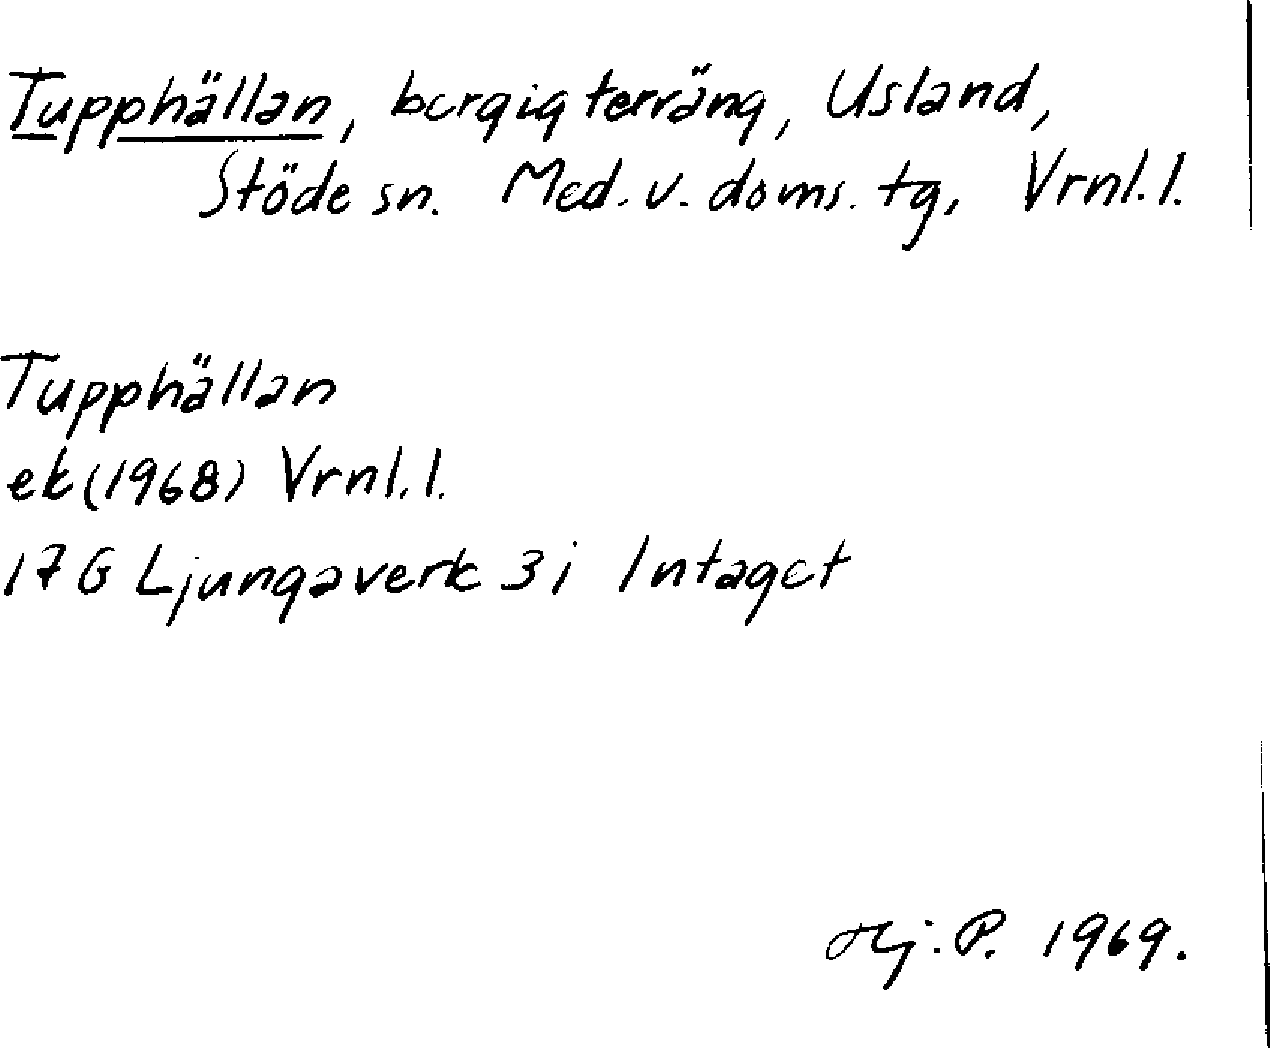 Tupphällan, bergig terräng, Usland,
Stöde sn. Med. v. doms. tg, Vrnl. l.
Tupphällan
ek (1968) Vrnl. l.
17 G Ljungaverk 3 i Intaget
Hj. P. 1969.